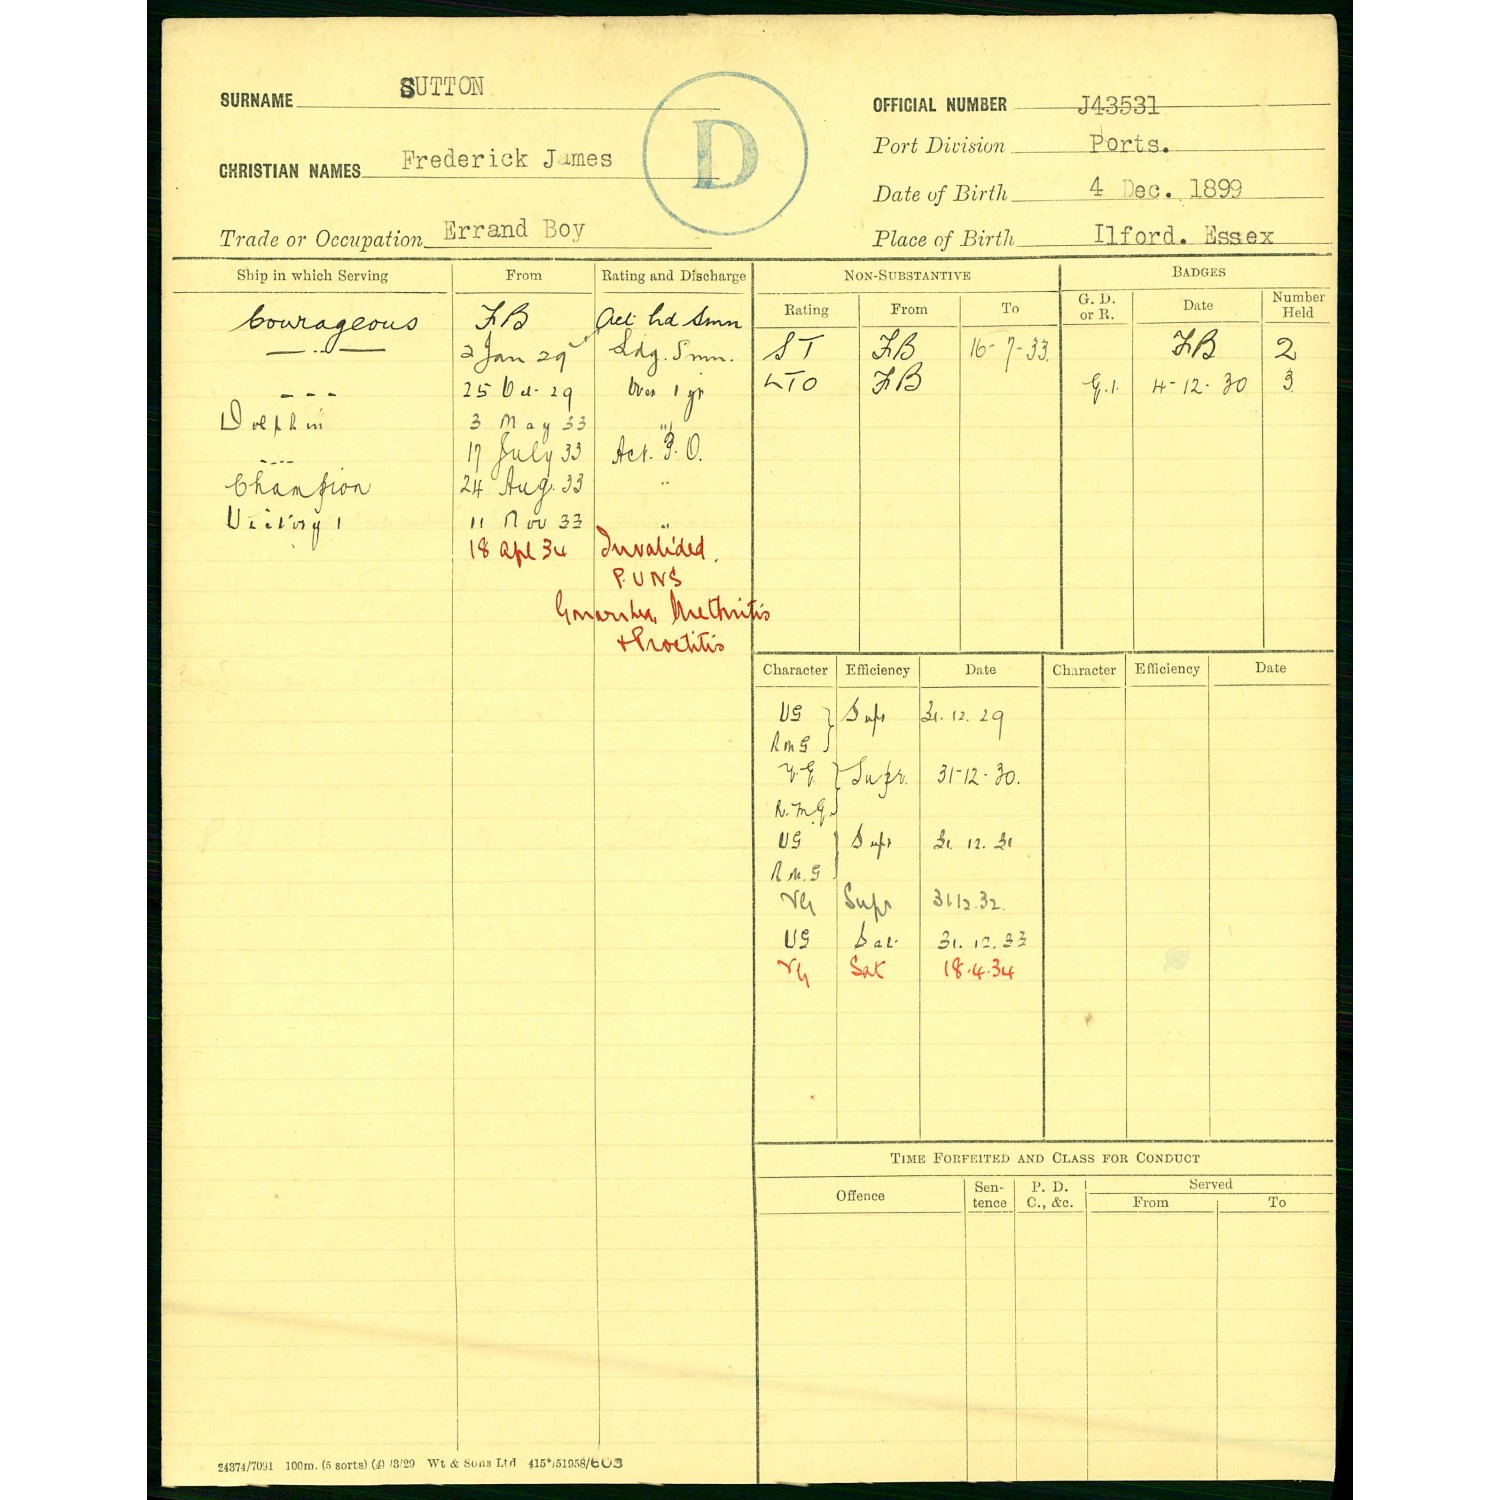 SURNAME SUTTON
OFFICIAL NUMBER J43531
D
Port Division Ports.
CHRISTIAN NAMES Frederick James
Date of Birth 4 Dec. 1899
Trade or Occupation Errand Boy
Place of Birth Ilford. Essex
Ship in which Serving From Rating and Discharge
Courageous FB Act Ld Smn
—..— 2 Jan 29 Ldg. Smn.
--- 25 Oct. 29 Over 1 yr
Dolphin 3 May 33 "
---- 17 July 33 Act. P.O.
Champion 24 Aug. 33 "
Victory 1 11 Nov 33 "
18 Apl 34 Invalided.
P.UNS
Gonorrhea, Urethritis
+ Proctitis
NON-SUBSTANTIVE
Rating From To
ST FB 16-7-33.
LTO FB
BADGES
G. D. or R. Date Number Held
FB 2
G.1. 4-12-30 3
Character Efficiency Date Character Efficiency Date
VG } Supr 31.12.29
RMG
V.G. } Supr. 31-12-30.
R.M.G.
VG } Supr 31.12.31
R.M.G
VG Supr 31.12.32.
VG Sat. 31.12.33
VG Sat 18.4.34
TIME FORFEITED AND CLASS FOR CONDUCT
Offence Sen-tence P. D. C., &c. Served
From To
24374/7091 100m. (5 sorts) (4) /3/29 Wt & Sons Ltd 415*/51958/603